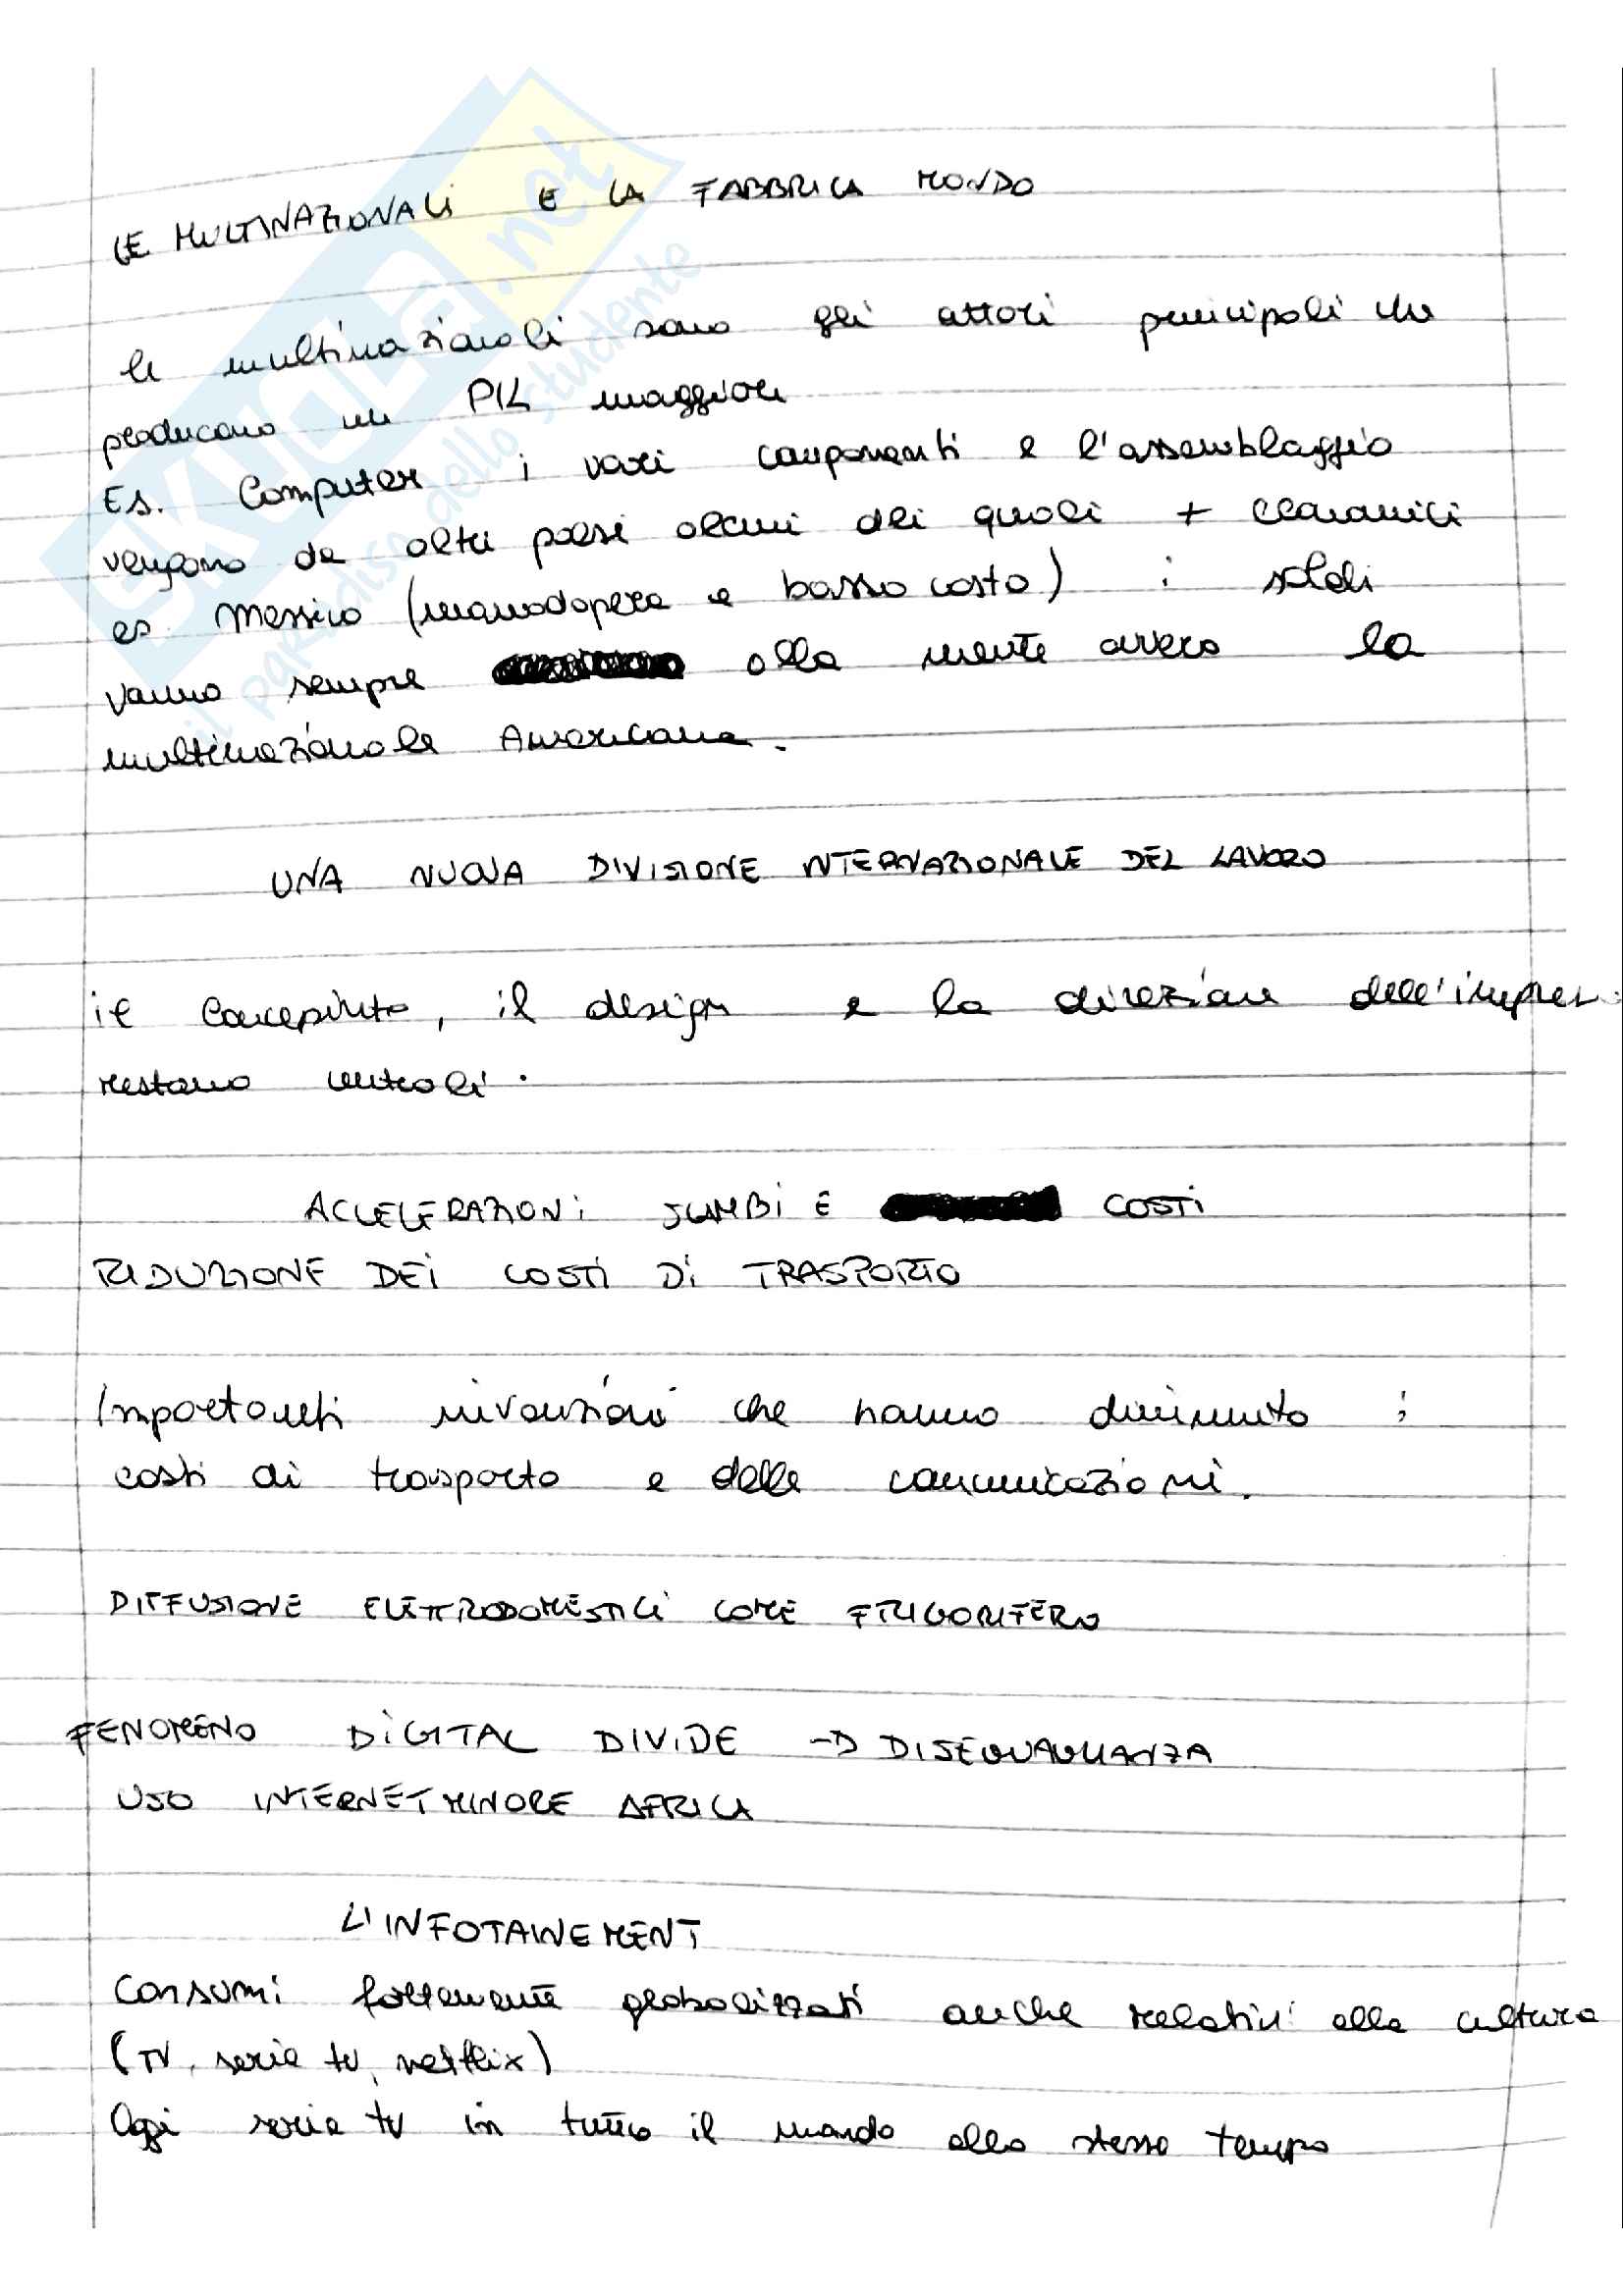 LE MULTINAZIONALI E LA FABBRICA MONDO
le multinazionali sono gli attori principali che
producono un PIL maggiore
Es. Computer i vari componenti e l'assemblaggio
vengono da altri paesi alcuni dei quali + economici
es. Messico (manodopera a basso costo) i soldi
vanno sempre alla mente ovvero la
multinazionale Americana.
UNA NUOVA DIVISIONE INTERNAZIONALE DEL LAVORO
il concepire, il design e la direzione dell'impres
restano centrali.
ACCELERAZIONI SCAMBI E COSTI
RIDUZIONE DEI COSTI DI TRASPORTO
Importanti invenzioni che hanno diminuito i
costi di trasporto e delle comunicazioni.
DIFFUSIONE ELETTRODOMESTICI COME FRIGORIFERO
FENOMENO DIGITAL DIVIDE -D DISEGUAGLIANZA
USO INTERNET MINORE AFRICA
L'INFOTAINEMENT
Consumi fortemente globalizzati anche relativi alla cultura
(TV, serie tv, netflix)
Oggi serie tv in tutto il mondo allo stesso tempo
SKUOLA.net
il paradiso dello studente